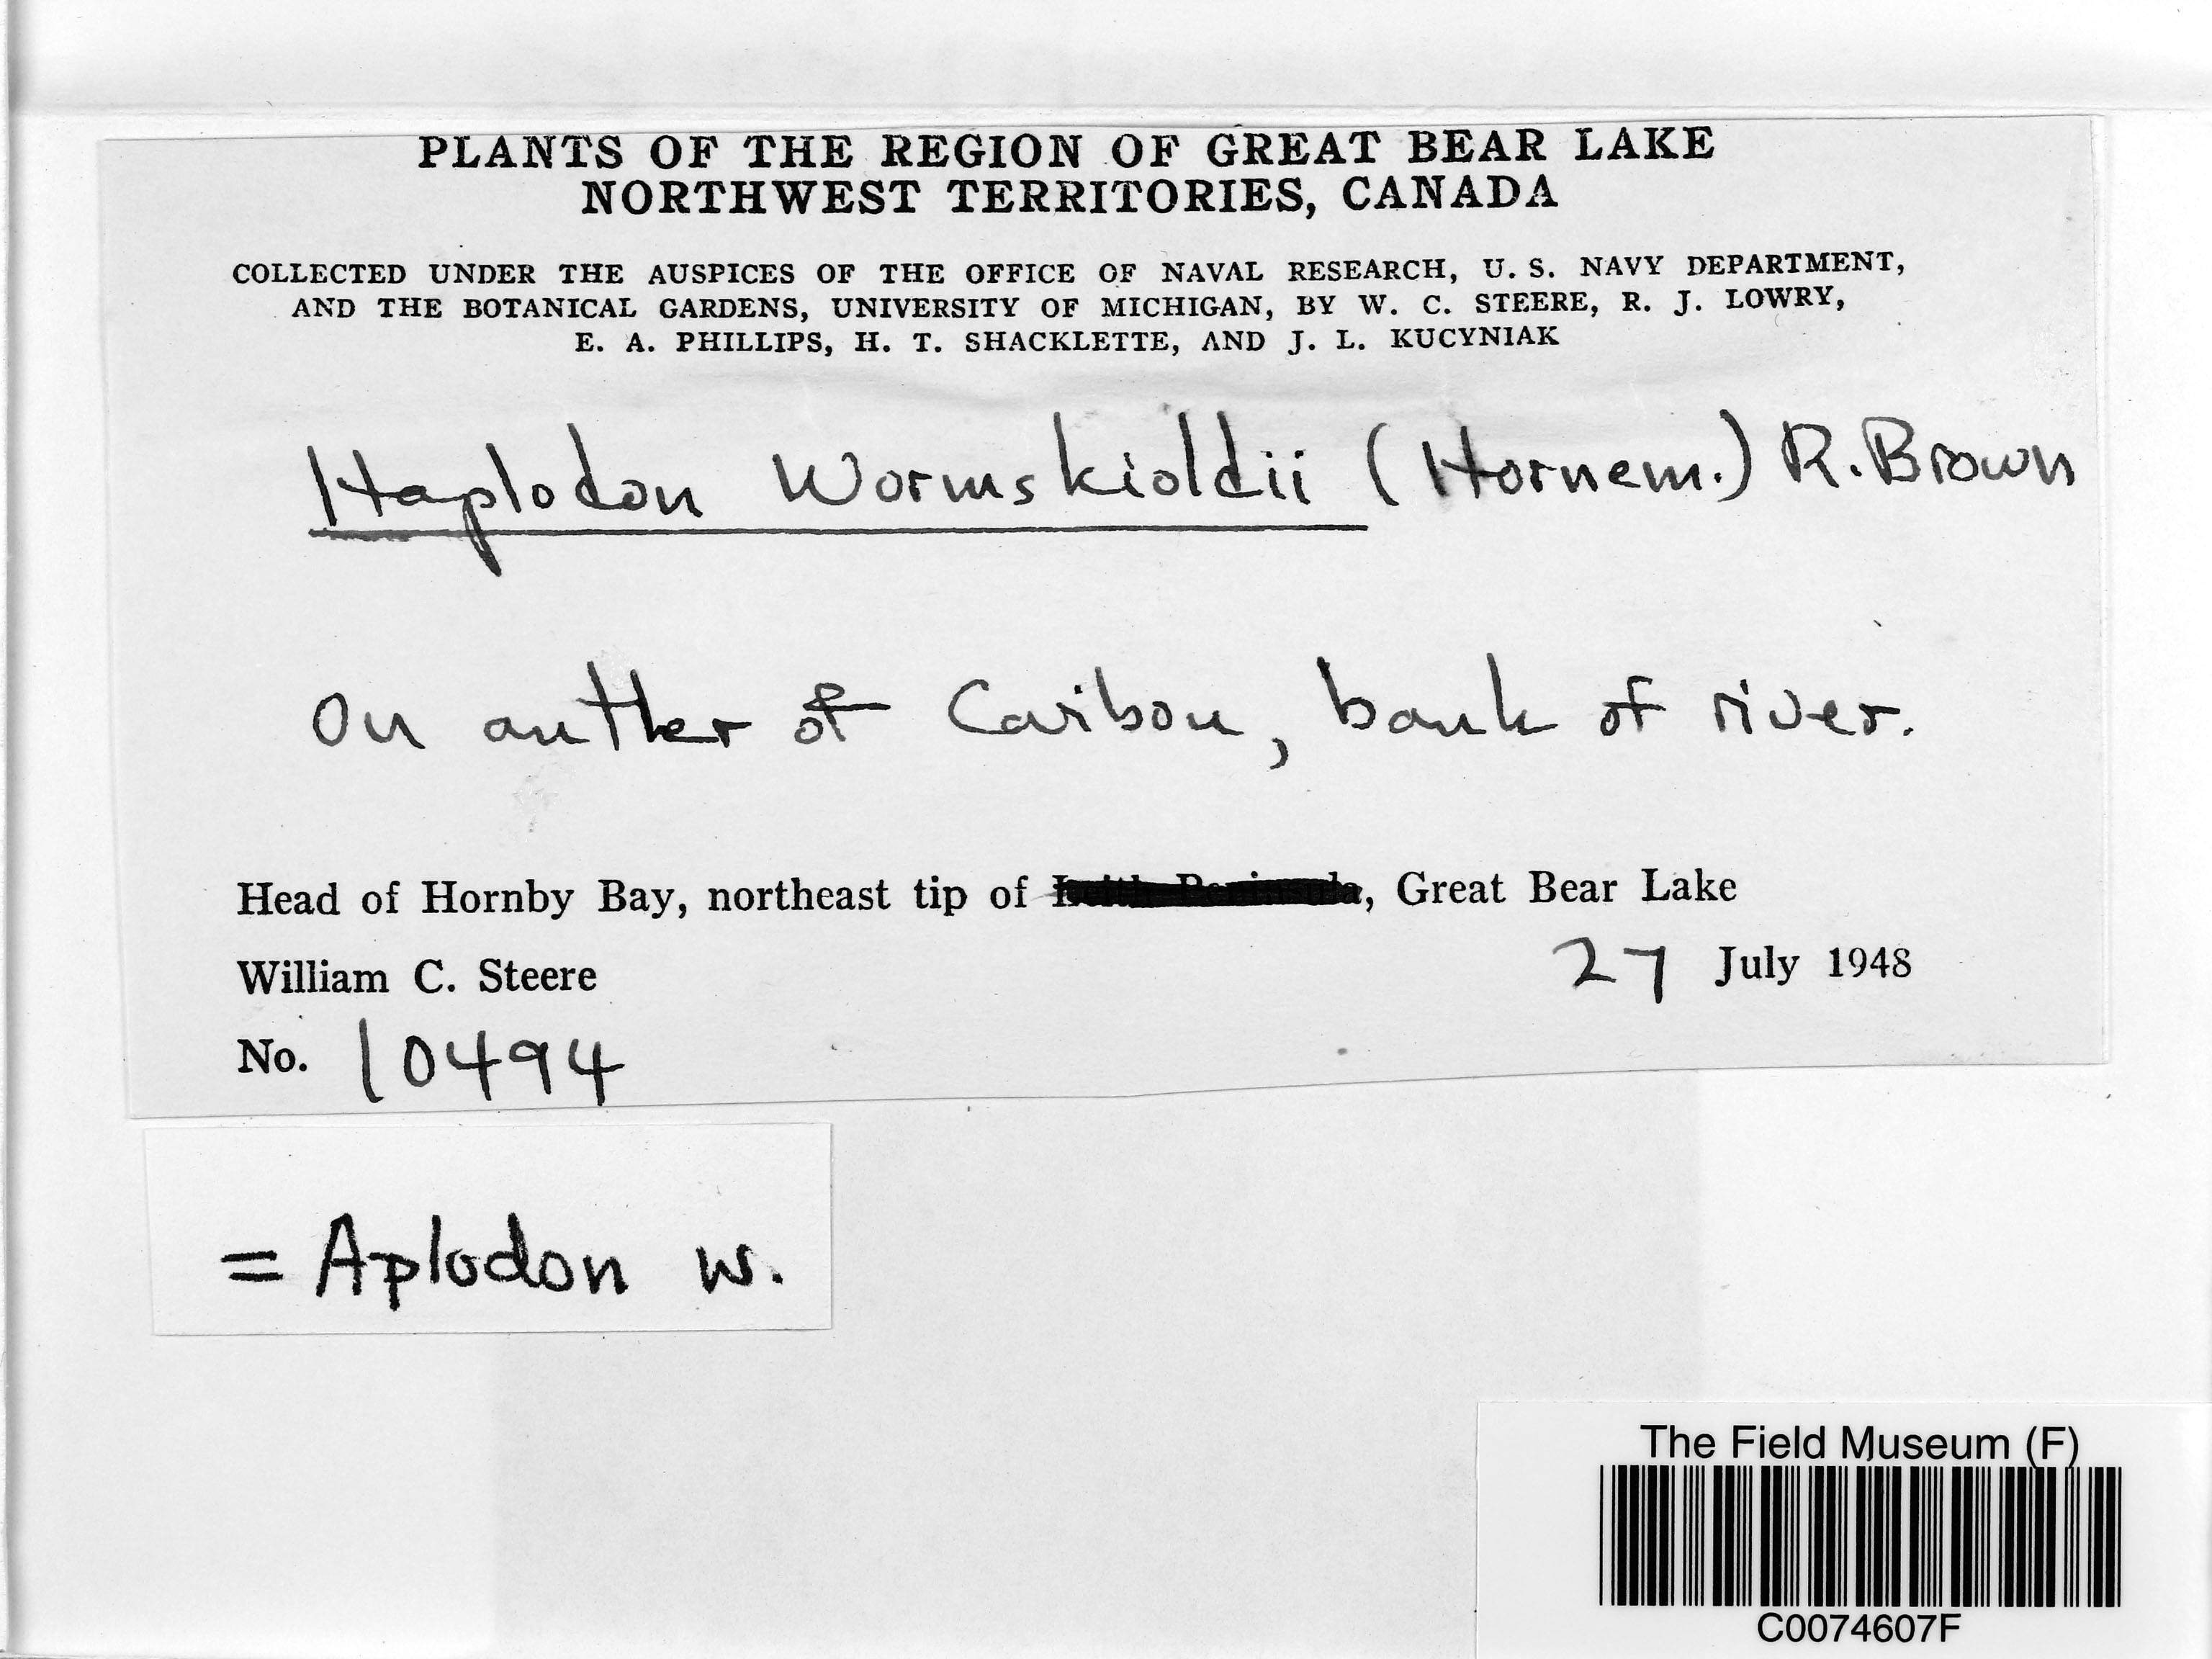 PLANTS OF THE REGION OF GREAT BEAR LAKE
NORTHWEST TERRITORIES, CANADA
COLLECTED UNDER THE AUSPICES OF THE OFFICE OF NAVAL RESEARCH, U. S. NAVY DEPARTMENT,
AND THE BOTANICAL GARDENS, UNIVERSITY OF MICHIGAN, BY W. C. STEERE, R. J. LOWRY,
E. A. PHILLIPS, H. T. SHACKLETTE, AND J. L. KUCYNIAK
Haplodon Wormskioldii (Hornem.) R. Brown
On antler of Caribou, bank of river.
Head of Hornby Bay, northeast tip of , Great Bear Lake
William C. Steere
27 July 1948
No. 10494
= Aplodon w.
The Field Museum (F)
C0074607F